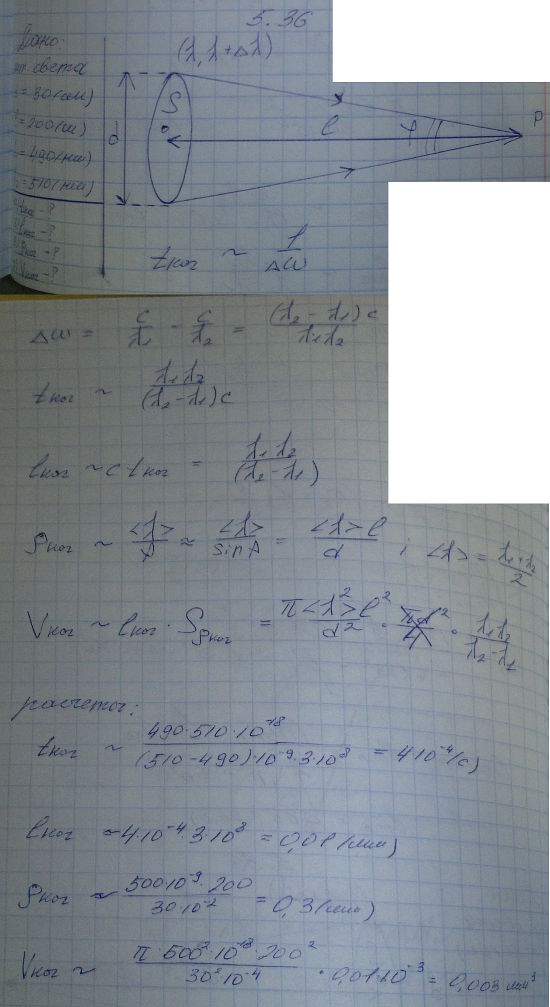 5.36
Дано:
света
= 30 (см)
= 200 (м)
= 490 (нм)
= 510 (нм)
tког - ?
lког - ?
ρког - ?
Vког - ?
(λ, λ+Δλ)
S
d
l
φ
P
tког ~ 1/Δω
Δω = c/λ1 - c/λ2 = (λ2 - λ1)c/λ1λ2
tког ~ λ1λ2/(λ2 - λ1)c
lког ~ c tког = λ1λ2/(λ2 - λ1)
ρког ~ <λ>/φ ≈ <λ>/sinφ = <λ>l/d ; <λ> = λ1+λ2/2
Vког ~ lког · Sρког = π<λ>²l²/d² · λ1λ2/λ2-λ1
расчеты:
tког ~ 490·510·10⁻¹⁸/(510-490)·10⁻⁹·3·10⁸ = 4·10⁻⁴ (с)
lког ~ 4·10⁻⁴·3·10⁸ = 0,01 (мм)
ρког ≈ 500·10⁻⁹·200/30·10⁻² = 0,3 (мм)
Vког ~ π·500²·10⁻¹⁸·200²/30²·10⁻⁴ · 0,01·10⁻³ = 0,003 мм³